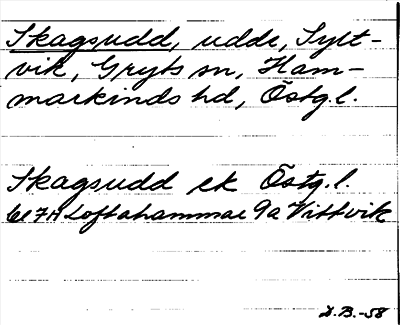 Skagsudd, udde, Sylt-
vik, Gryts sn, Ham-
markinds hd, Östg.l.
Skagsudd ek Östg.l.
bl 7H Loftahammar 9a Vittvik
D.B.-58